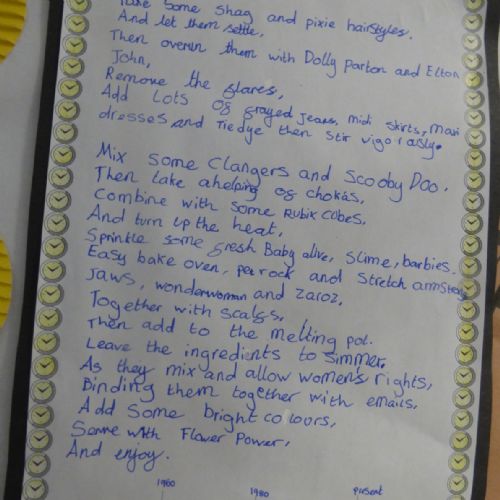 Take some shag and pixie hairstyles.
And let them settle,
Then overun them with Dolly Parton and Elton
John,
Remove the flares,
Add Lots of frayed Jeans, midi skirts, maxi
dresses and Tiedye then stir vigorously.
Mix some Clangers and Scooby Doo.
Then take a helping of chokas,
Combine with some Rubix Cubes,
And turn up the heat,
Sprinkle some fresh Baby alive, slime, barbies.
Easy bake oven, pet rock and Stretch armstrong
Jaws, wonderwoman and
Together with
Then add to the melting pot.
Leave the ingredients to simmer,
As they mix and allow women's rights,
Binding them together with emails,
Add some bright colours,
Serve with Flower Power,
And enjoy.
1960 1980 present